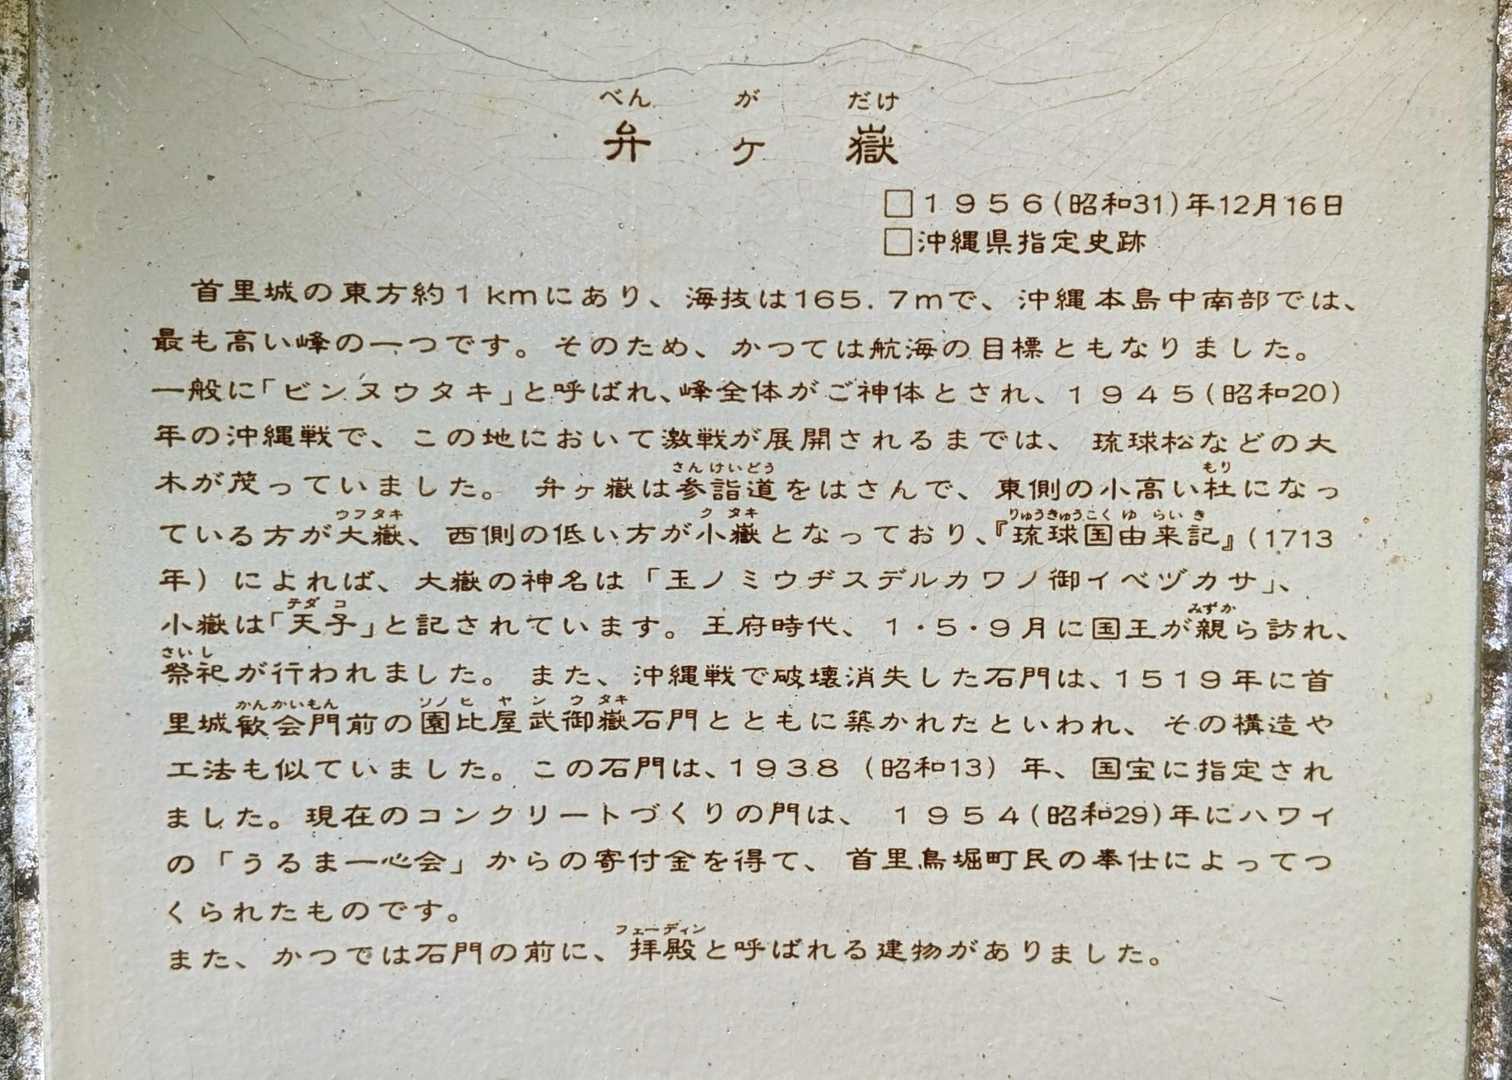 べんがだけ
弁ヶ嶽
□1956(昭和31)年12月16日
□沖縄県指定史跡
首里城の東方約1kmにあり、海抜は165.7mで、沖縄本島中南部では、
最も高い峰の一つです。そのため、かつては航海の目標ともなりました。
一般に「ビンヌウタキ」と呼ばれ、峰全体がご神体とされ、1945(昭和20)
年の沖縄戦で、この地において激戦が展開されるまでは、琉球松などの大
さんけいどう もり
木が茂っていました。弁ヶ嶽は参詣道をはさんで、東側の小高い杜になっ
ウフタキ クタキ りゅうきゅうこくゆらいき
ている方が大嶽、西側の低い方が小嶽となっており、『琉球国由来記』(1713
年)によれば、大嶽の神名は「玉ノミウヂスデルカワノ御イベヅカサ」、
テダコ みずか
小嶽は「天子」と記されています。王府時代、1・5・9月に国王が親ら訪れ、
さいし
祭祀が行われました。また、沖縄戦で破壊消失した石門は、1519年に首
かんかいもん ソノヒヤンウタキ
里城歓会門前の園比屋武御嶽石門とともに築かれたといわれ、その構造や
工法も似ていました。この石門は、1938(昭和13)年、国宝に指定され
ました。現在のコンクリートづくりの門は、1954(昭和29)年にハワイ
の「うるま一心会」からの寄付金を得て、首里鳥堀町民の奉仕によってつ
くられたものです。
フェーディン
また、かつでは石門の前に、拝殿と呼ばれる建物がありました。